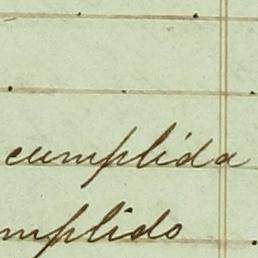 cumplida
mplido